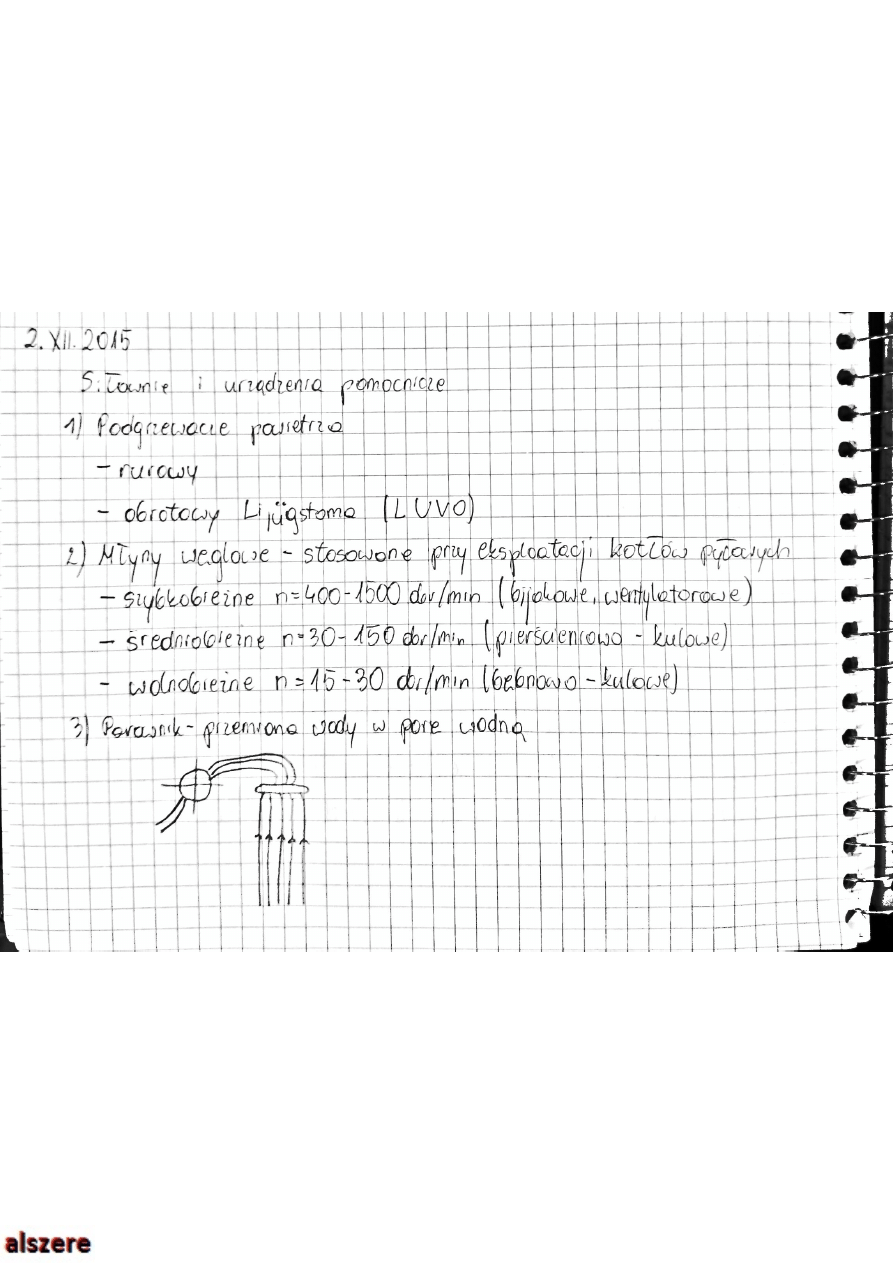 2. XII. 2015
Siłownie i urządzenia pomocnicze
1) Podgrzewacze powietrza
- rurowy
- obrotowy Lijügstoma (LUVO)
2) Młyny węglowe - stosowane przy eksploatacji kotłów pyłowych
- szybkobieżne n=400-1500 obr/min (bijakowe, wentylatorowe)
- średniobieżne n=30-150 obr/min (pierścieniowo-kulowe)
- wolnobieżne n=15-30 obr/min (bębnowo-kulowe)
3) Parownik - przemiana wody w parę wodną
alszere